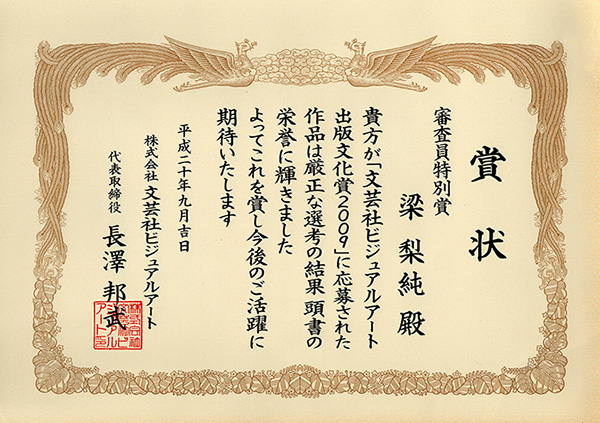 賞状
審査員特別賞
梁 梨純 殿
貴方が「文芸社ビジュアルアート
出版文化賞2009」に応募された
作品は厳正な選考の結果頭書の
栄誉に輝きました
よってこれを賞し今後のご活躍に
期待いたします
平成二十年九月吉日
株式会社 文芸社ビジュアルアート
代表取締役 長澤 邦武